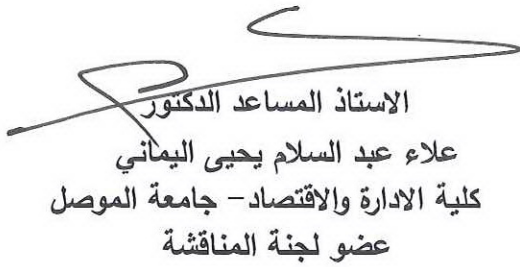 الاستاذ المساعد الدكتور
علاء عبد السلام يحيى اليماني
كلية الادارة والاقتصاد– جامعة الموصل
عضو لجنة المناقشة